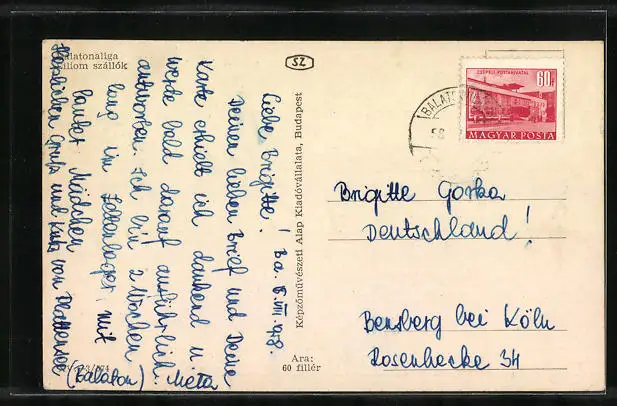 Balatonaliga
Liliom szállók
SZ
CSEPELI POSTAHIVATAL
60f
MAGYAR POSTA
BALATON
58
Liebe Brigitte! Ba. 8.VIII.958.
Deinen lieben Brief und Deine
Karte erhielt ich dankend u.
werde bald darauf ausführlich
antworten. Ich bin 2 Wochen
lang im Zeltenlager mit
lauter Mädchen
Herzlichen Gruß und Kuß von Plattensee
(Balaton) Meta
Képzőművészeti Alap Kiadóvállalata, Budapest
Ara:
60 fillér
Brigitte Gorka
Deutschland!
Bensberg bei Köln
Rosenhecke 34